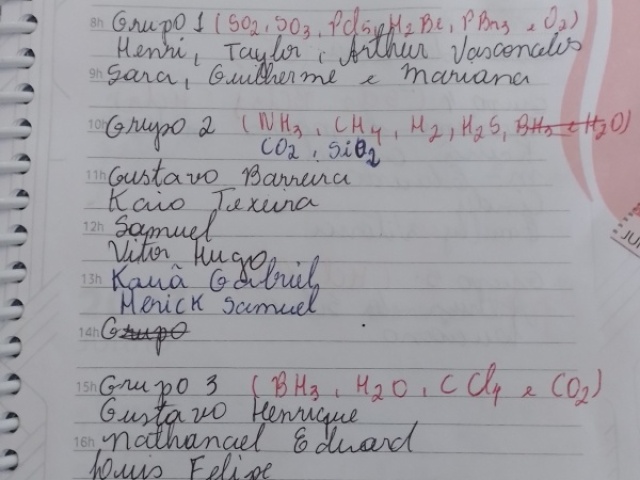 8h Grupo 1 (SO2, SO3, PCl5, H2Be, PBr3 e O2)
Henri, Taylor, Arthur Vasconcelos
9h Sara, Guilherme e Mariana
10h Grupo 2 (NH3, CH4, H2, H2S, BH3 e H2O)
CO2, SiO2
11h Gustavo Barreira
Kaio Texeira
12h Samuel
Vitor Hugo
13h Kauã Gabriel
Merick Samuel
14h Grupo
15h Grupo 3 (BH3, H2O, CCl4 e CO2)
Gustavo Henrique
16h Nathanael Eduard
Luis Felipe
JUN